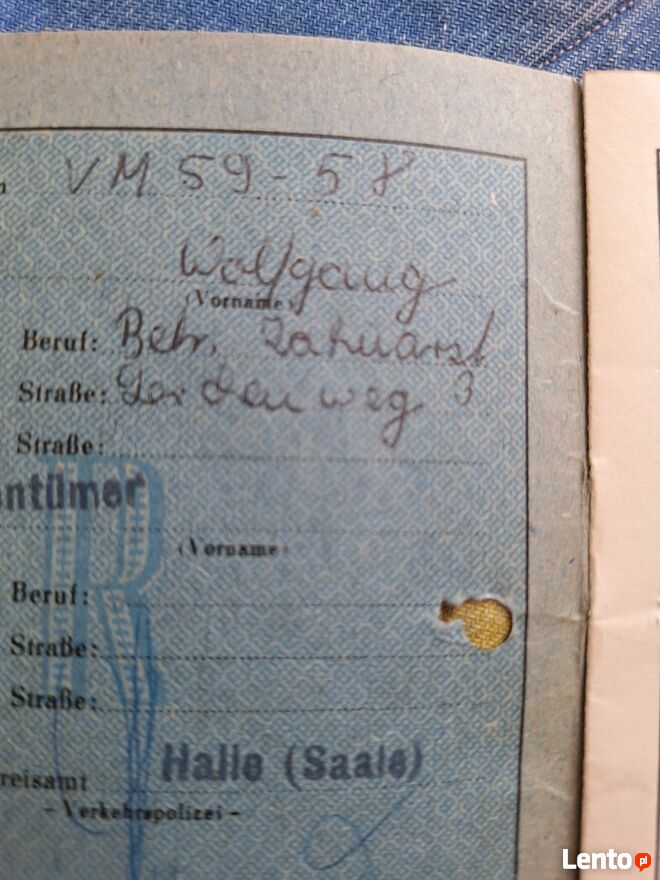 VM 59-58
Wolfgang
(Vorname)
Beruf: Betr. Zahnarzt
Straße: weg 3
Straße:
entümer
(Vorname)
Beruf:
Straße:
Straße:
reisamt Halle (Saale)
- Verkehrspolizei -
Lento.pl